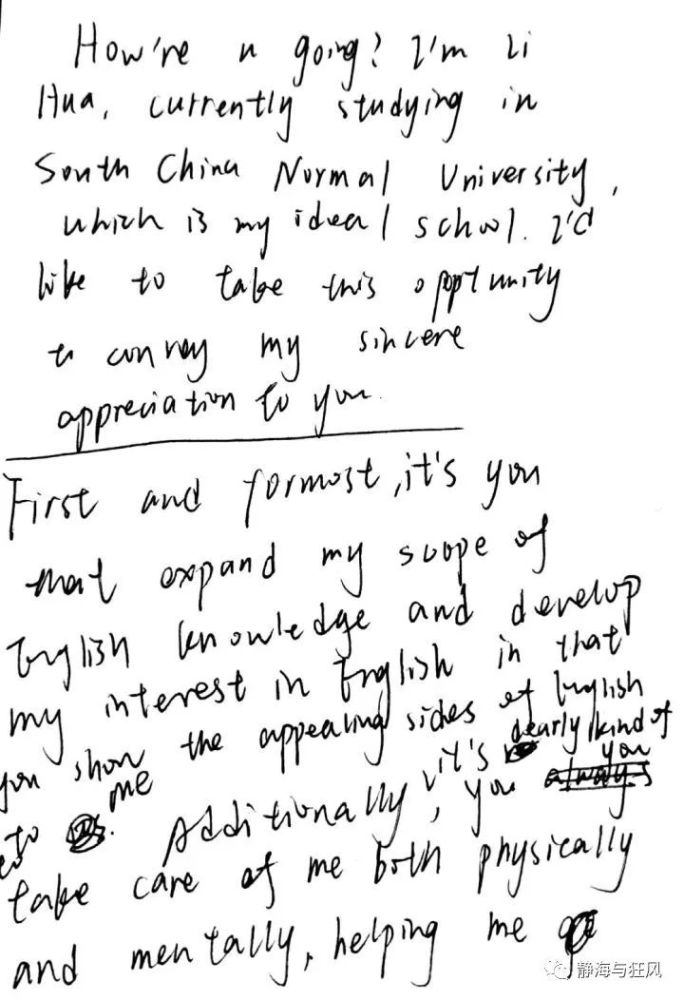 How're u going? I'm Li
Hua, currently studying in
South China Normal University,
which is my ideal school. I'd
like to take this opptunity
to convey my sincere
appreciation to you.
First and formost, it's you
that expand my scope of
English knowledge and develop
my interest in English in that
you show the appealing sides of English
to me. Additionally, it's dearly kind of
you you
to take care of me both physically
and mentally, helping me
静海与狂风